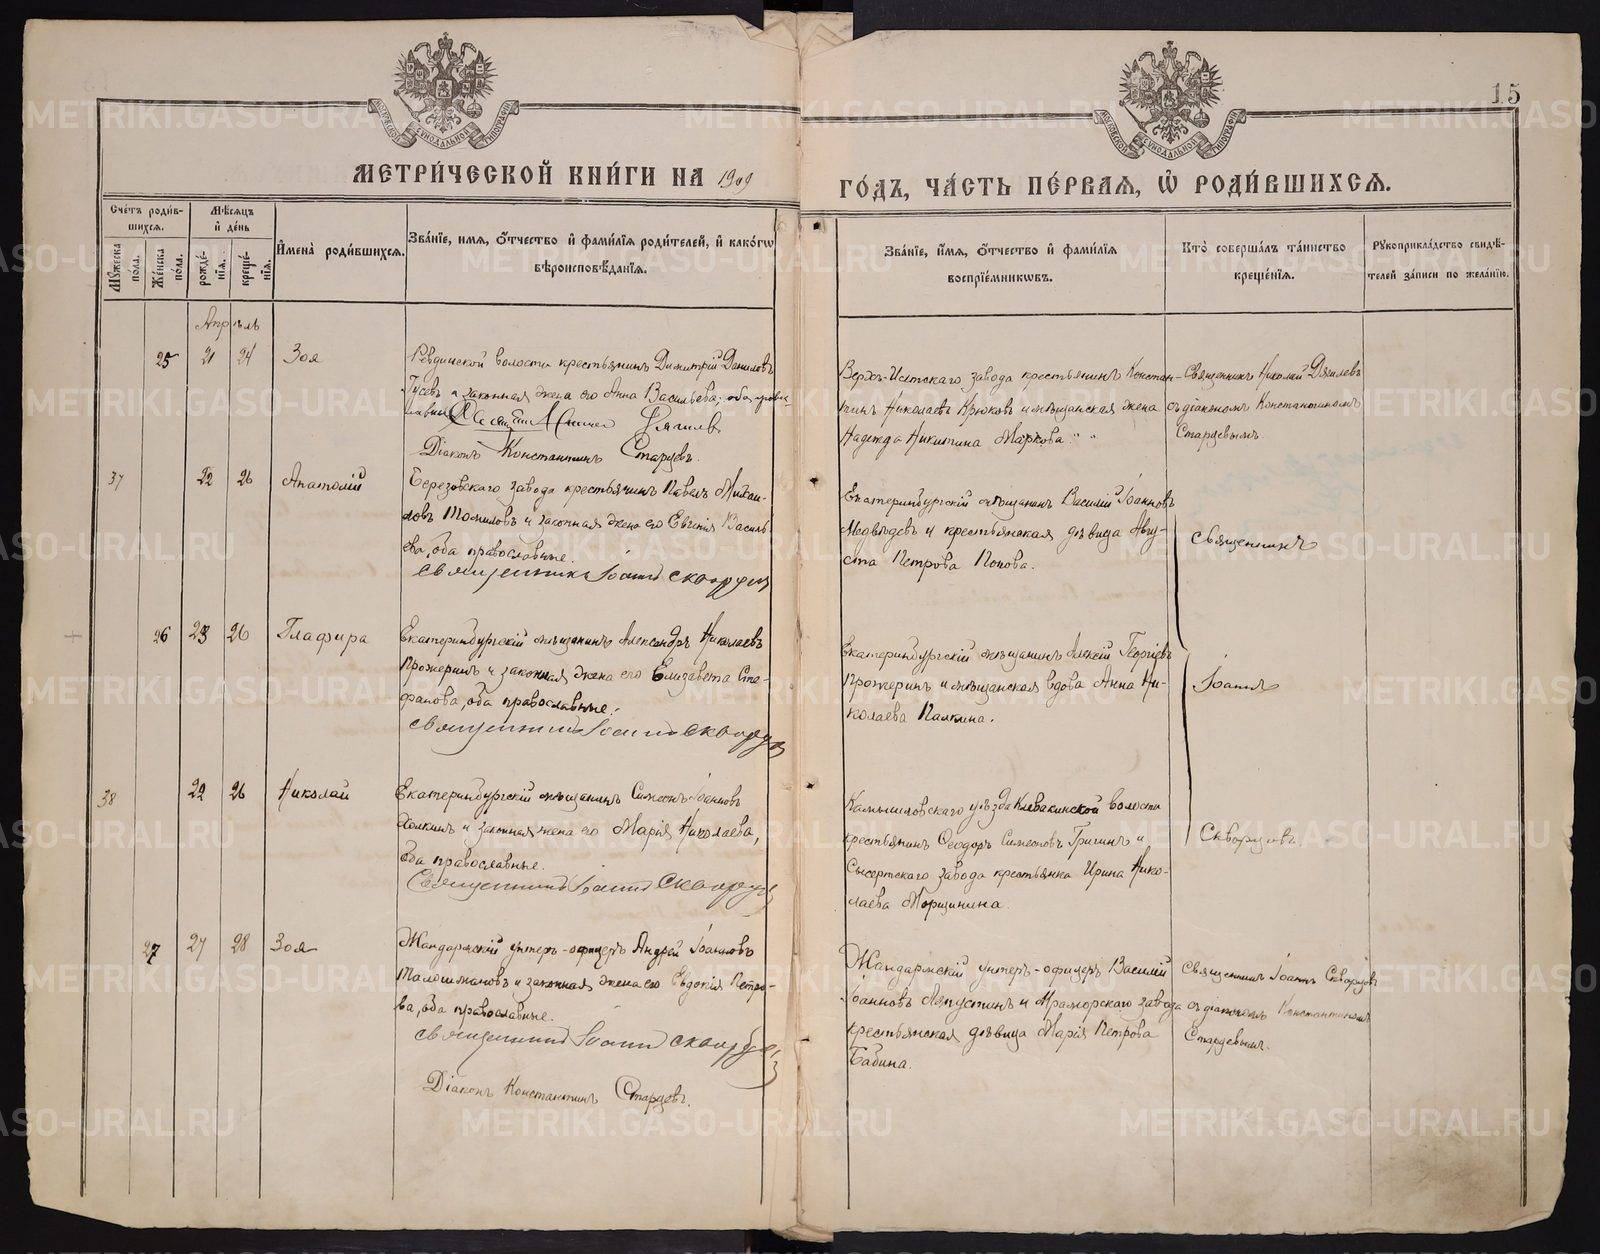 15
МЕТРИ́ЧЕСКОЙ КНИ́ГИ НА 1909
ГО́ДЪ, ЧА́СТЬ ПЕ́РВАЯ, Ѽ РОДИ́ВШИХСЯ.
Сче́тъ роди́в-
шихся.
Мѣ́сяцъ
и де́нь
Мꙋжеска по́ла.
Же́нска по́ла.
рожде́-
нїѧ.
креще́-
нїѧ.
И҆мена̀ роди́вшихся.
Зва́нїе, имя, О҆тчество и҆ фами́лїя роди́телей, и҆ како́гѡ
вѣроисповѣ́данїя.
Зва́нїе, и҆мя, О҆тчество и҆ фами́лїя
воспрїе́мникѡвъ.
Кто̀ соверша́лъ та́инство
креще́нїя.
Рꙋкоприкла́дство свидѣ́-
телей за́писи по жела́нїю.
Апрѣль
25 21 24 Зоя
Ревдинской волости крестьянинъ Димитрій Даниловъ
Гусевъ и законная жена его Анна Васильева, оба право-
славные
Дягилев
Діаконъ Константинъ Старцевъ.
Верхъ-Исетскаго завода крестьянинъ Констан-
тинъ Николаевъ Крюковъ и мѣщанская жена
Надежда Никитина Маркова.
Священникъ Николай Дягилевъ
съ діакономъ Константиномъ
Старцевымъ.
37 22 26 Анатолій
Березовскаго завода крестьянинъ Павелъ Михаи-
ловъ Томиловъ и законная жена его Евгенія Василь-
ева, оба православные.
Священникъ Іоаннъ Скворцов
Екатеринбургскій мѣщанинъ Василій Іоанновъ
Медвѣдевъ и крестьянская дѣвица Авгу-
ста Петрова Попова.
Священникъ
26 23 26 Глафира
Екатеринбургскій мѣщанинъ Александръ Николаевъ
Прожеринъ и законная жена его Елизавета Сте-
фанова, оба православные.
Священникъ Іоаннъ Скворцов
Екатеринбургскій мѣщанинъ Алексій Георгіевъ
Прожеринъ и мѣщанская вдова Анна Ни-
колаева Палкина.
Іоаннъ
38 22 26 Николай
Екатеринбургскій мѣщанинъ Симеонъ Іоанновъ
и законная жена его Марія Николаева,
оба православные.
Священникъ Іоаннъ Скворцов
Камышловскаго уѣзда Клевакинской волости
крестьянинъ Ѳеодоръ Симеоновъ Гришинъ и
Сысертскаго завода крестьянка Ирина Нико-
лаева Морщинина.
Скворцовъ.
27 27 28 Зоя
Жандармскій унтеръ-офицеръ Андрей Іоанновъ
и законная жена его Евдокія Петро-
ва, оба православные.
Священникъ Іоаннъ Скворцов
Діаконъ Константинъ Старцевъ.
Жандармскій унтеръ-офицеръ Василій
Іоанновъ Ляпустинъ и Мраморскаго завода
крестьянская дѣвица Марія Петрова
Бабина.
Священникъ Іоаннъ Скворцовъ
съ діакономъ Константиномъ
Старцевымъ.